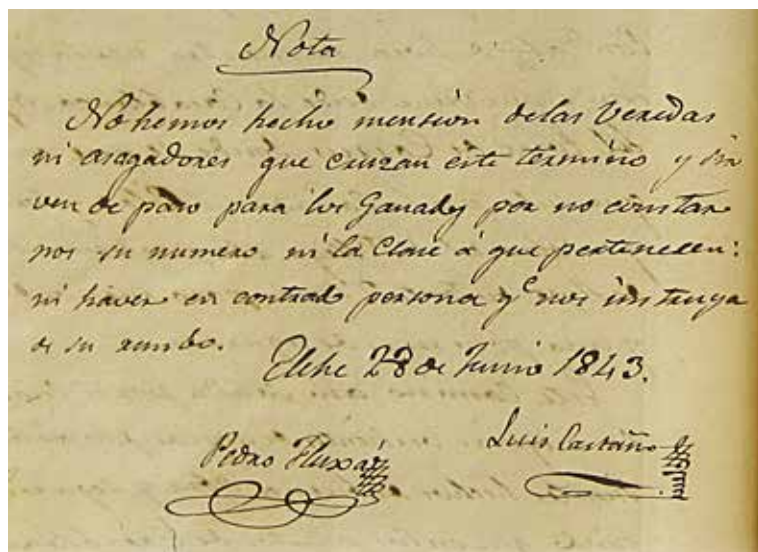 Nota
No hemos hecho mension de las Veredas
ni asagadores que cruzan este termino y sir
ven de paso para los Ganados por no constar
nos su numero ni la Clase á que pertenecen:
ni haver encontrado persona q.e nos instruya
de su rumbo.
Elche 28 de Junio 1843.
Pedro Fluxá
Luis Castaño